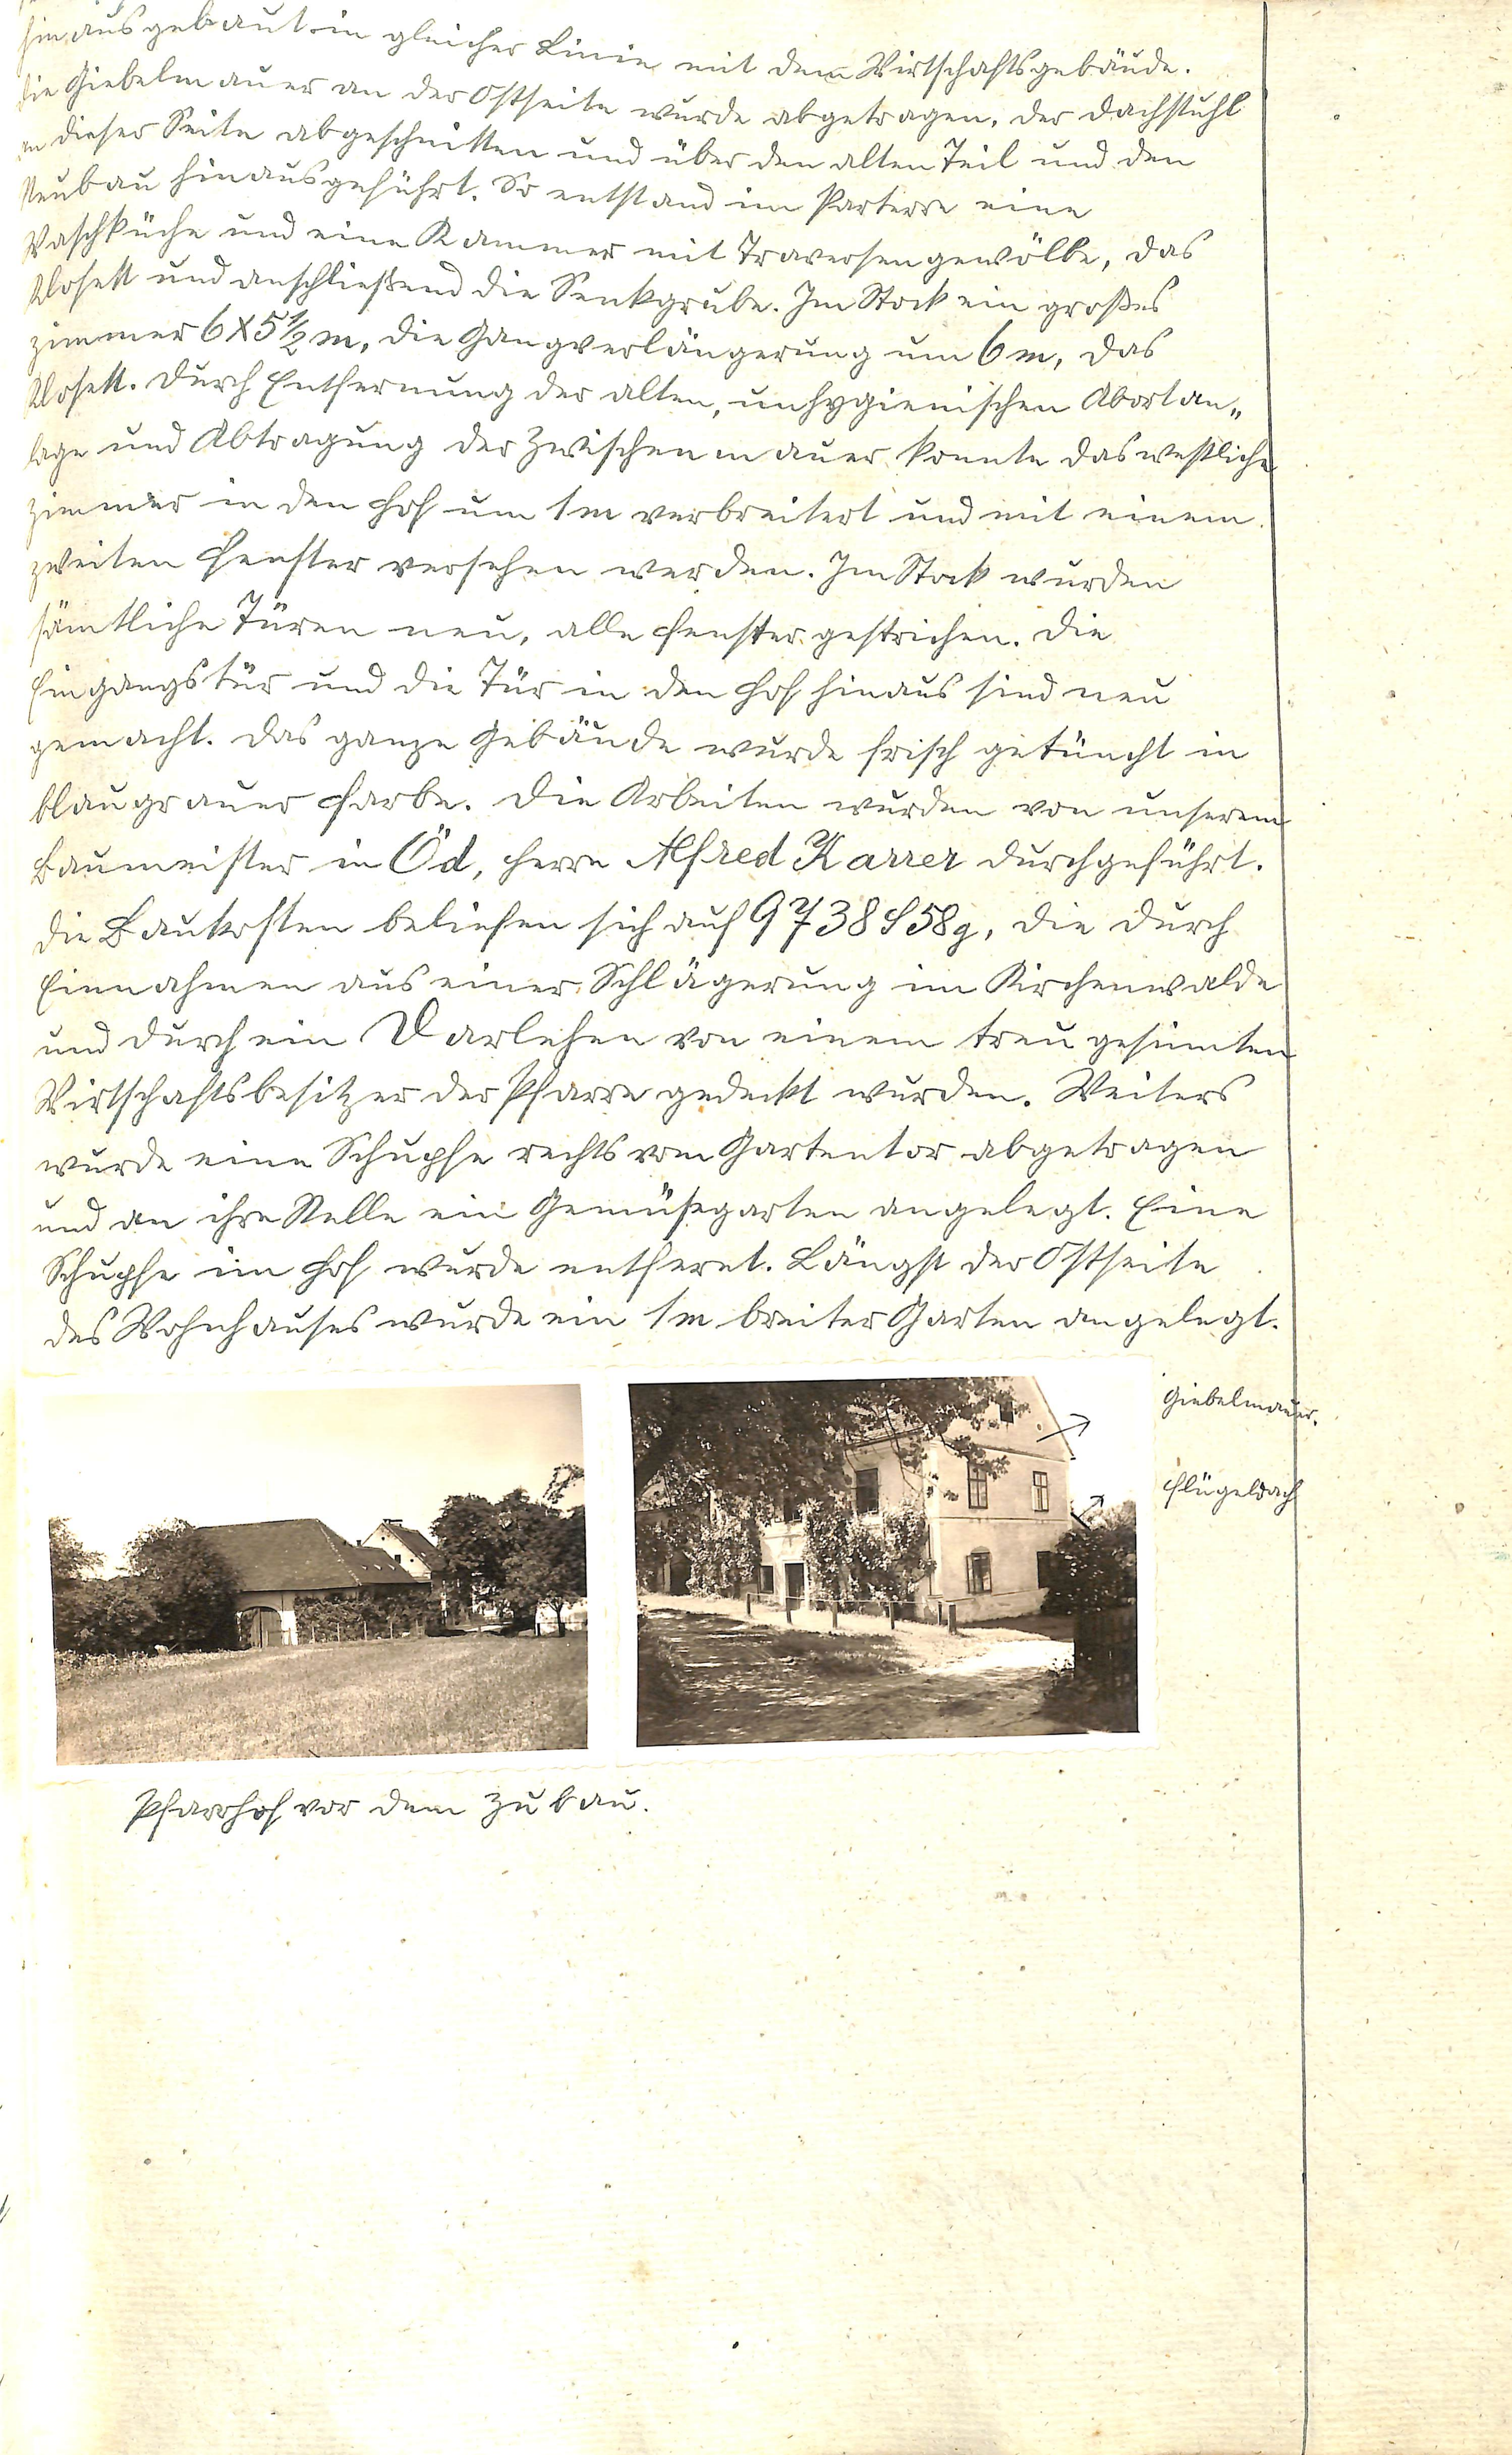 hinausgebaut in gleicher Linie mit dem Wirtschaftsgebäude.
die Giebelmauer an der Ostseite wurde abgetragen, der Dachstuhl
an dieser Seite abgeschnitten und über den alten Teil und den
Neubau hinausgeführt. So entstand im Parterre eine
Waschküche und eine Kammer mit Traversengewölbe, das
Klosett und anschließend die Senkgrube. Im Stock ein großes
Zimmer 6 X 5 ½ m, die Gangverlängerung um 6 m, das
Klosett. Durch Entfernung der alten, unhygienischen Abortan„
lage und Abtragung der Zwischenmauer konnte das westliche
Zimmer in den Hof um 1 m verbreitert und mit einem
zweiten Fenster versehen werden. Im Stock wurden
sämtliche Türen neu, alle Fenster gestrichen. Die
Eingangstür und die Tür in den Hof hinaus sind neu
gemacht. Das ganze Gebäude wurde frisch getüncht in
blaugrauer Farbe. Die Arbeiten wurden von unserem
Baumeister in Öd, Herrn Alfred Karrer durchgeführt.
Die Baukosten beliefen sich auf 9738 S 58 g, die durch
Einnahmen aus einer Schlägerung im Kirchenwalde
und durch ein Darlehen von einem treu gesinnten
Wirtschaftsbesitzer der Pfarre gedeckt wurden. Weiters
wurde eine Schupfe rechts vom Gartentor abgetragen
und an ihre Stelle ein Gemüsegarten angelegt. Eine
Schupfe im Hof wurde entfernt. Längst der Ostseite
des Wohnhauses wurde ein 1 m breiter Garten angelegt.
Giebelmauer.
Flügeldach
Pfarrhof vor dem Zubau.